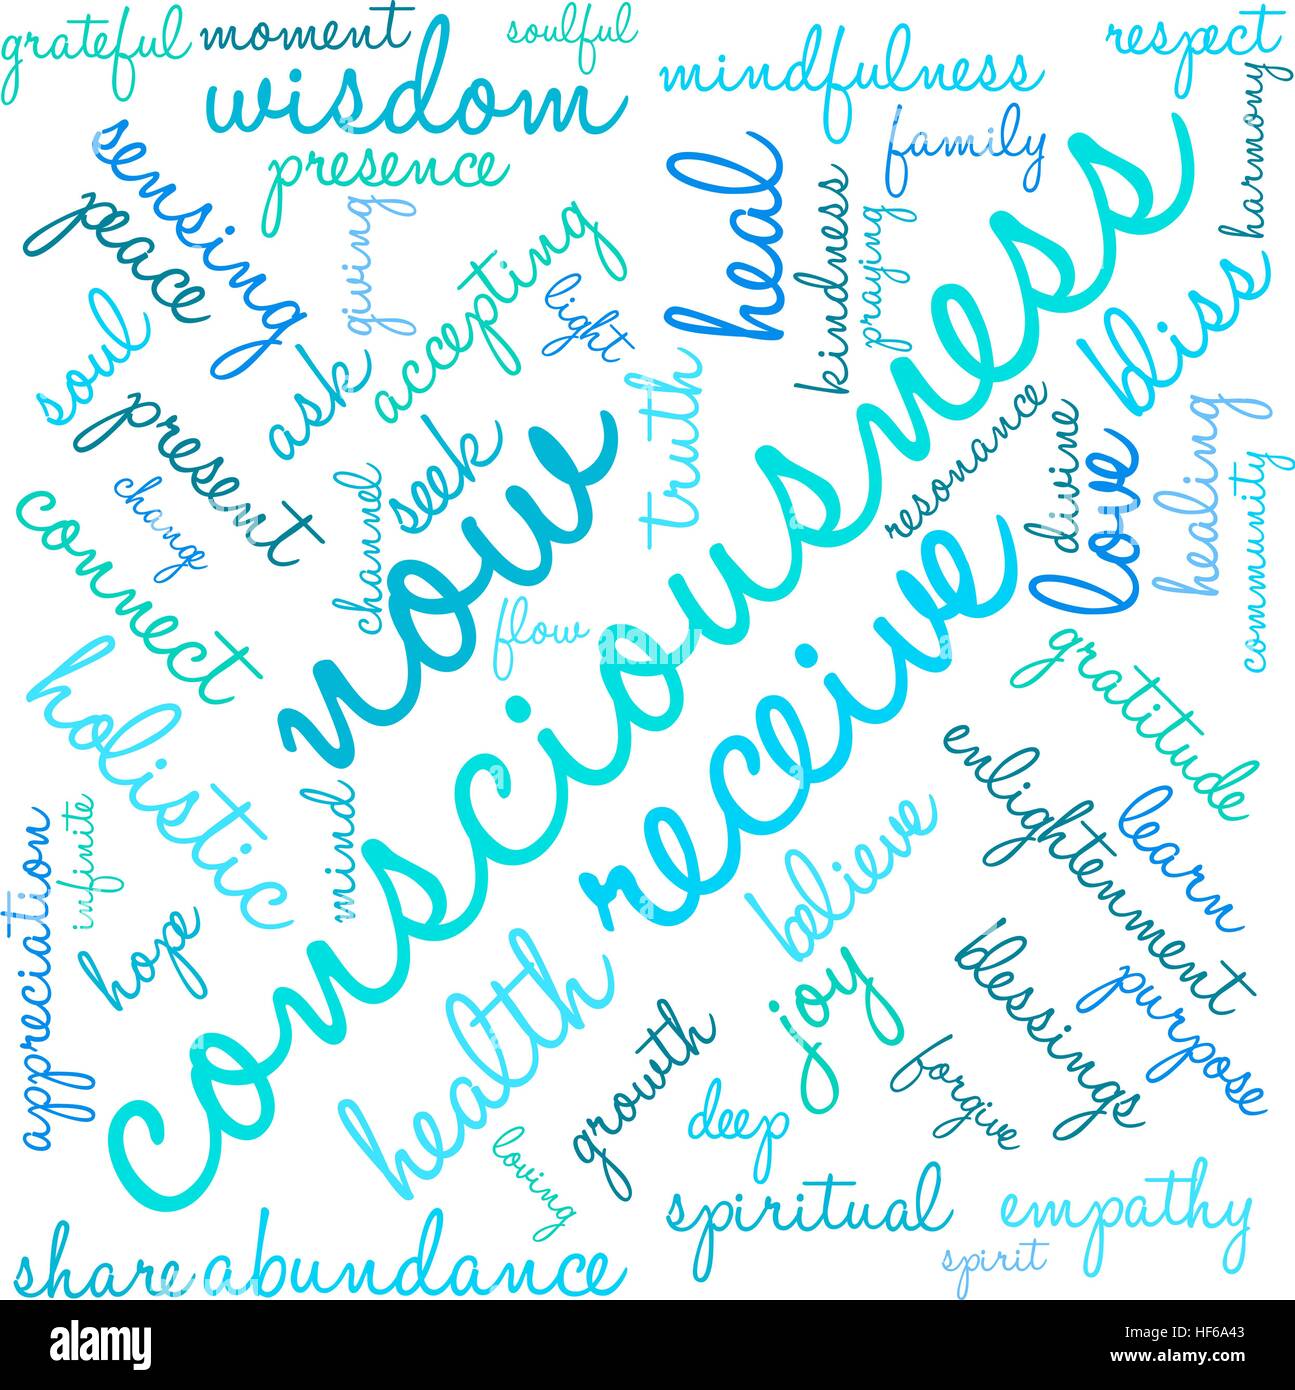 grateful
moment
soulful
respect
wisdom
mindfulness
harmony
presence
family
sensing
peace
giving
accepting
light
heal
kindness
praying
consciousness
bliss
soul
ask
present
seek
truth
now
resonance
divine
love
healing
community
change
channel
connect
flow
receive
gratitude
holistic
mind
enlightenment
learn
appreciation
infinite
hope
believe
joy
blessings
purpose
health
growth
deep
forgive
loving
spiritual
empathy
spirit
share
abundance
alamy
Image ID: HF6A43
www.alamy.com